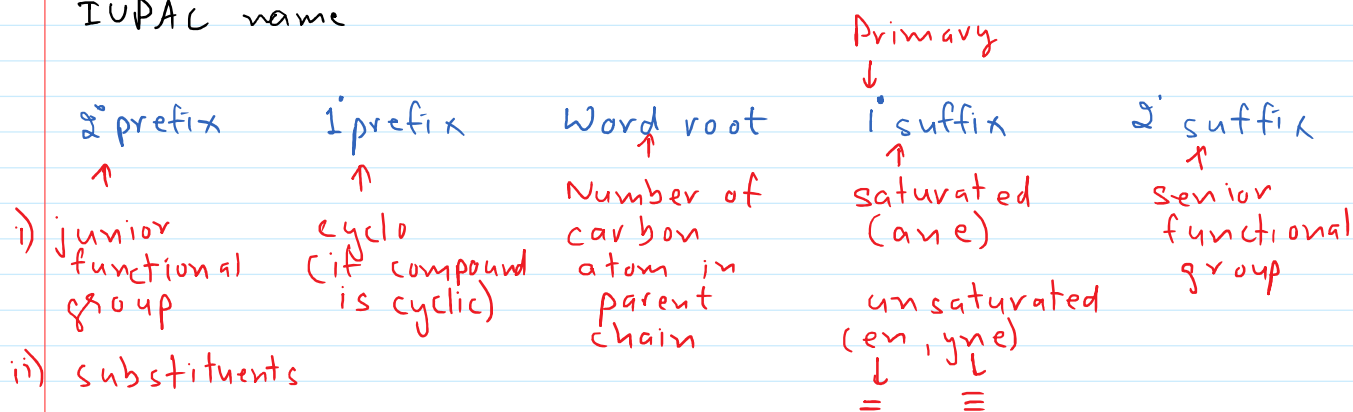 IUPAC name
Primary
↓
2° prefix 1° prefix Word root 1° suffix 2° suffix
↑ ↑ ↑ ↑ ↑
i) junior functional group
ii) substituents
cyclo
(if compound
is cyclic)
Number of
carbon
atom in
parent
chain
saturated
(ane)
unsaturated
(en, yne)
↓ ↓
= ≡
senior
functional
group